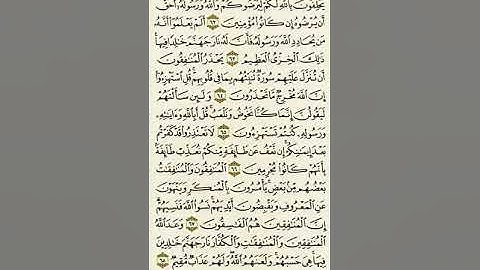 يَحْلِفُونَ بِٱللَّهِ لَكُمْ لِيُرْضُوكُمْ وَٱللَّهُ وَرَسُولُهُۥٓ أَحَقُّ
أَن يُرْضُوهُ إِن كَانُوا۟ مُؤْمِنِينَ ٦٢ أَلَمْ يَعْلَمُوٓا۟ أَنَّهُۥ
مَن يُحَادِدِ ٱللَّهَ وَرَسُولَهُۥ فَأَنَّ لَهُۥ نَارَ جَهَنَّمَ خَٰلِدًا فِيهَا
ذَٰلِكَ ٱلْخِزْىُ ٱلْعَظِيمُ ٦٣ يَحْذَرُ ٱلْمُنَٰفِقُونَ
أَن تُنَزَّلَ عَلَيْهِمْ سُورَةٌ تُنَبِّئُهُم بِمَا فِى قُلُوبِهِمْ قُلِ ٱسْتَهْزِءُوٓا۟
إِنَّ ٱللَّهَ مُخْرِجٌ مَّا تَحْذَرُونَ ٦٤ وَلَئِن سَأَلْتَهُمْ
لَيَقُولُنَّ إِنَّمَا كُنَّا نَخُوضُ وَنَلْعَبُ قُلْ أَبِٱللَّهِ وَءَايَٰتِهِۦ
وَرَسُولِهِۦ كُنتُمْ تَسْتَهْزِءُونَ ٦٥ لَا تَعْتَذِرُوا۟ قَدْ كَفَرْتُم
بَعْدَ إِيمَٰنِكُمْ إِن نَّعْفُ عَن طَآئِفَةٍ مِّنكُمْ نُعَذِّبْ طَآئِفَةًۢ
بِأَنَّهُمْ كَانُوا۟ مُجْرِمِينَ ٦٦ ٱلْمُنَٰفِقُونَ وَٱلْمُنَٰفِقَٰتُ
بَعْضُهُم مِّنۢ بَعْضٍ يَأْمُرُونَ بِٱلْمُنكَرِ وَيَنْهَوْنَ
عَنِ ٱلْمَعْرُوفِ وَيَقْبِضُونَ أَيْدِيَهُمْ نَسُوا۟ ٱللَّهَ فَنَسِيَهُمْ
إِنَّ ٱلْمُنَٰفِقِينَ هُمُ ٱلْفَٰسِقُونَ ٦٧ وَعَدَ ٱللَّهُ
ٱلْمُنَٰفِقِينَ وَٱلْمُنَٰفِقَٰتِ وَٱلْكُفَّارَ نَارَ جَهَنَّمَ خَٰلِدِينَ
فِيهَا هِىَ حَسْبُهُمْ وَلَعَنَهُمُ ٱللَّهُ وَلَهُمْ عَذَابٌ مُّقِيمٌ ٦٨